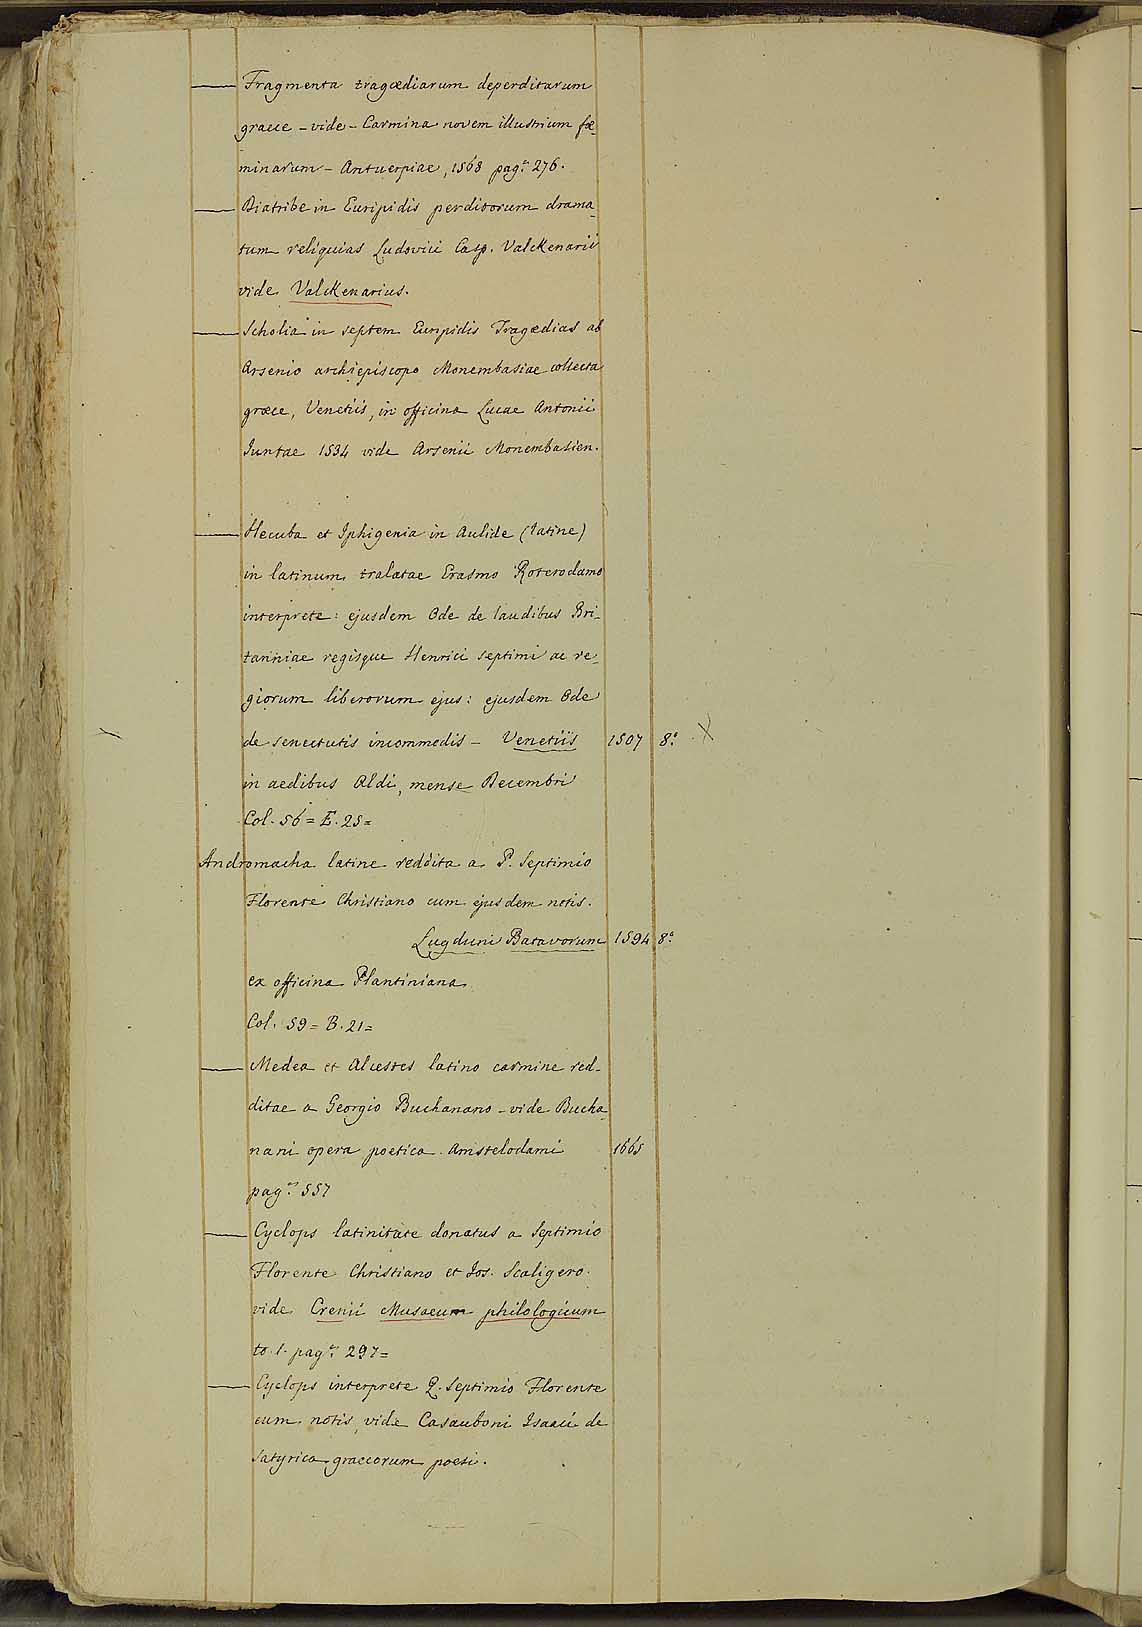 — Fragmenta tragœdiarum deperditarum
graece – vide – Carmina novem illustrium fœ-
minarum – Antuerpiae, 1568 pag.ª 276.
— Diatribe in Euripidis perditorum drama-
tum reliquias Ludovici Casp. Valckenarii
vide Valckenarius.
— Scholia in septem Euripidis Tragœdias ab
Arsenio archiepiscopo Monembasiae collecta
græce, Venetiis, in officina Lucae Antonii
Juntae 1534 vide Arsenii Monembasien.
— Hecuba et Iphigenia in Aulide (latine)
in latinum tralatae Erasmo Roterodamo
interprete: ejusdem Ode de laudibus Bri-
tanniae regisque Henrici septimi ac re-
giorum liberorum ejus: ejusdem Ode
de senectutis incommodis – Venetiis 1507 8.º X
in aedibus Aldi, mense Decembri
Col. 56 = E. 25 =
Andromacha latine reddita a P. Septimio
Florente Christiano cum ejusdem notis.
Lugduni Batavorum 1594 8.º
ex officina Plantiniana
Col. 59 = B. 21 =
— Medea et Alcestes latino carmine red-
ditae a Georgio Buchanano – vide Bucha-
nani opera poetica. Amstelodami 1665
pag.ª 557
— Cyclops latinitate donatus a Septimio
Florente Christiano et Jos. Scaligero.
vide Crenii Musaeum philologicum
to. 1. pag.ª 297 =
— Cyclops interprete Q. Septimio Florente
cum notis, vide Casauboni Isaaci de
satyrica graecorum poesi.